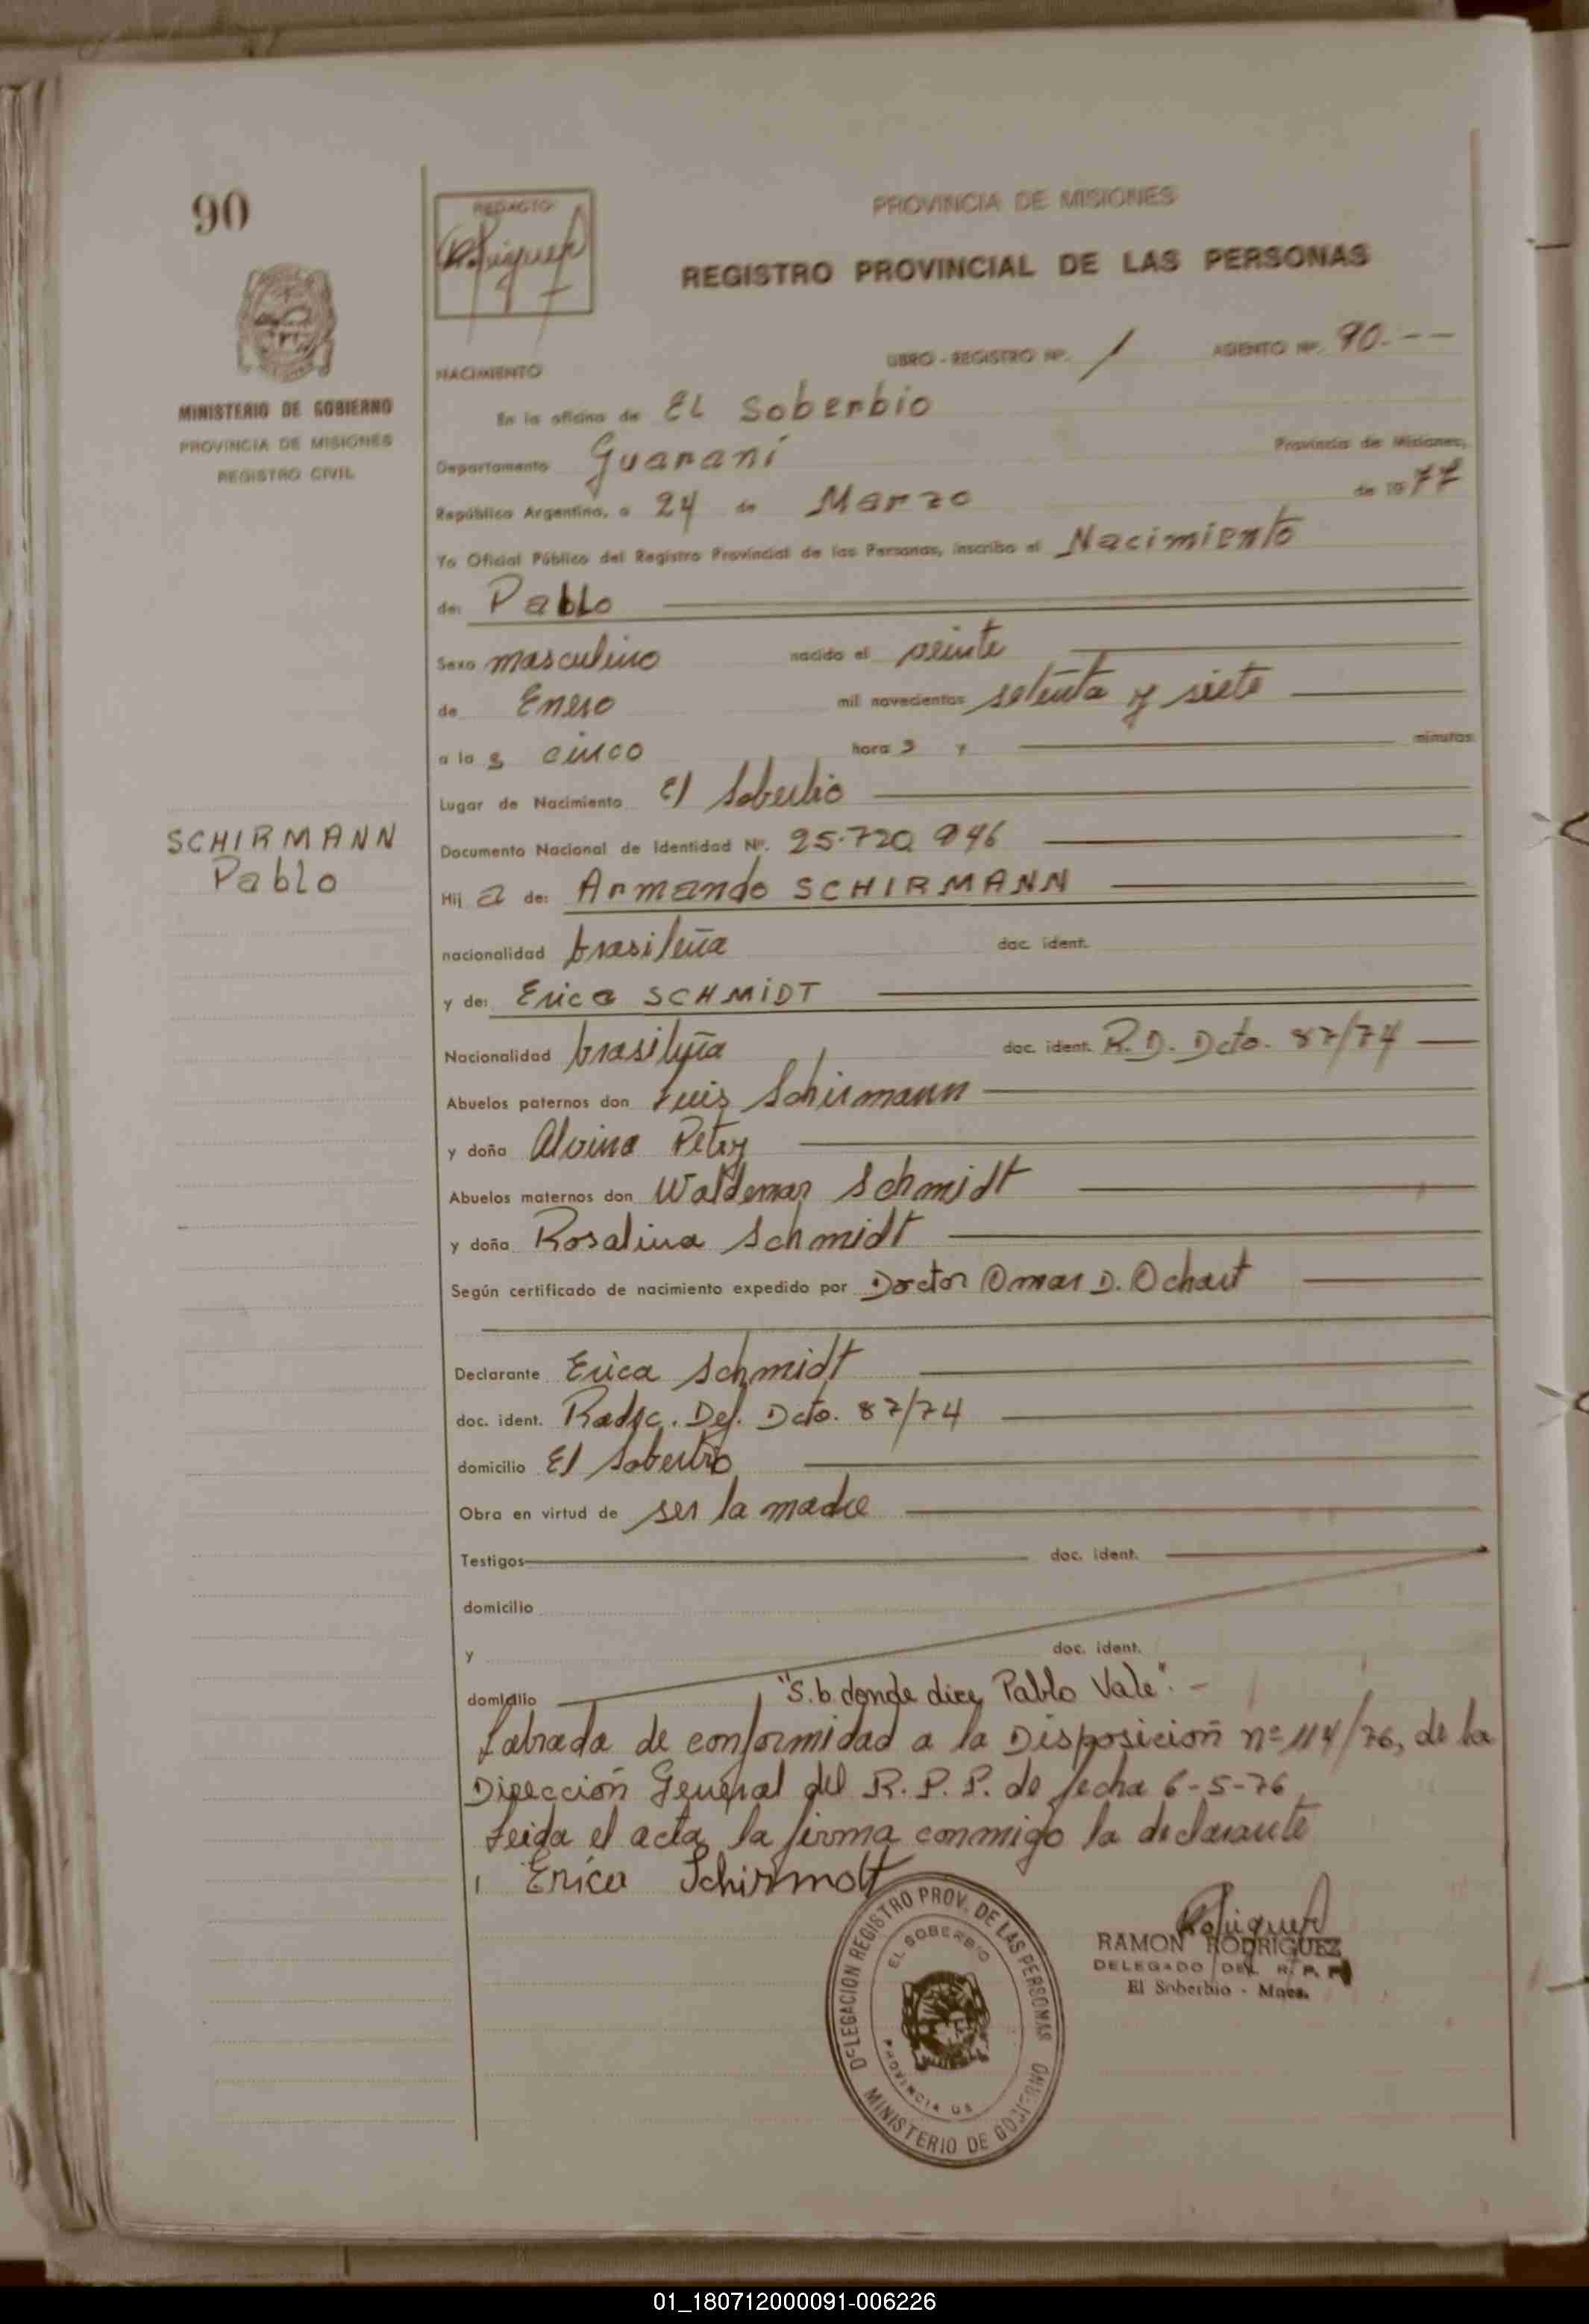 90
MINISTERIO DE GOBIERNO
PROVINCIA DE MISIONES
REGISTRO CIVIL
SCHIRMANN
Pablo
REDACTO
PROVINCIA DE MISIONES
REGISTRO PROVINCIAL DE LAS PERSONAS
LIBRO - REGISTRO Nº. 1 ASIENTO Nº. 90.--
NACIMIENTO
En la oficina de EL Soberbio
Departamento Guaraní Provincia de Misiones,
República Argentina, a 24 de Marzo de 1977
Yo Oficial Público del Registro Provincial de las Personas, inscribo el Nacimiento
de: Pablo
Sexo masculino nacido el veinte
de Enero mil novecientos setenta y siete
a la s cinco hora s y minutos
Lugar de Nacimiento El Soberbio
Documento Nacional de Identidad Nº. 25.720.946
Hij o de: Armando SCHIRMANN
nacionalidad brasileña doc. ident.
y de: Erica SCHMIDT
Nacionalidad brasileña doc. ident. R.D. Dcto. 87/74
Abuelos paternos don Luis Schirmann
y doña Alvina Petry
Abuelos maternos don Waldemar Schmidt
y doña Rosalina Schmidt
Según certificado de nacimiento expedido por Doctor Omar D.
Declarante Erica Schmidt
doc. ident. Radic. Def. Dcto. 87/74
domicilio El Soberbio
Obra en virtud de ser la madre
Testigos doc. ident.
domicilio
y doc. ident.
domicilio "S.b. donde dice, Pablo Vale".-
Labrada de conformidad a la Disposición nº 114/76, de la
Dirección General del R.P.P. de fecha 6-5-76
Leida el acta, la firma conmigo la declarante
Erica Schirmolt
DELEGACION REGISTRO PROV. DE LAS PERSONAS
EL SOBERBIO
PROVINCIA DE
MINISTERIO DE GOBIERNO
RAMON RODRIGUEZ
DELEGADO DEL R. P. P.
El Soberbio - Mnes.
01_180712000091-006226